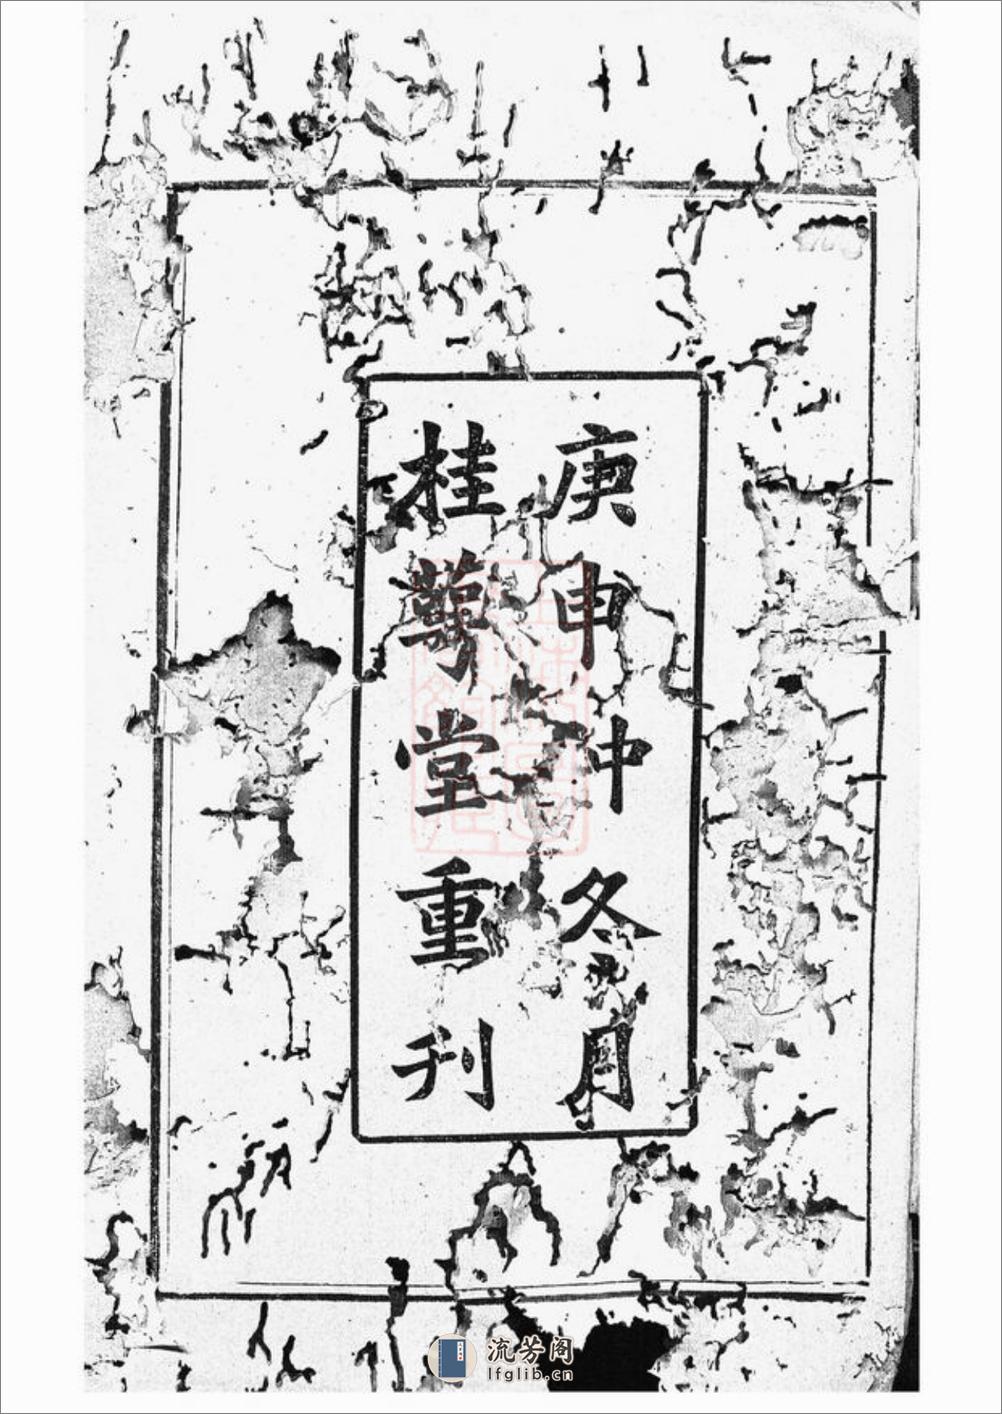 庚申仲冬月
桂萼堂重刊
流芳阁
lfglib.cn